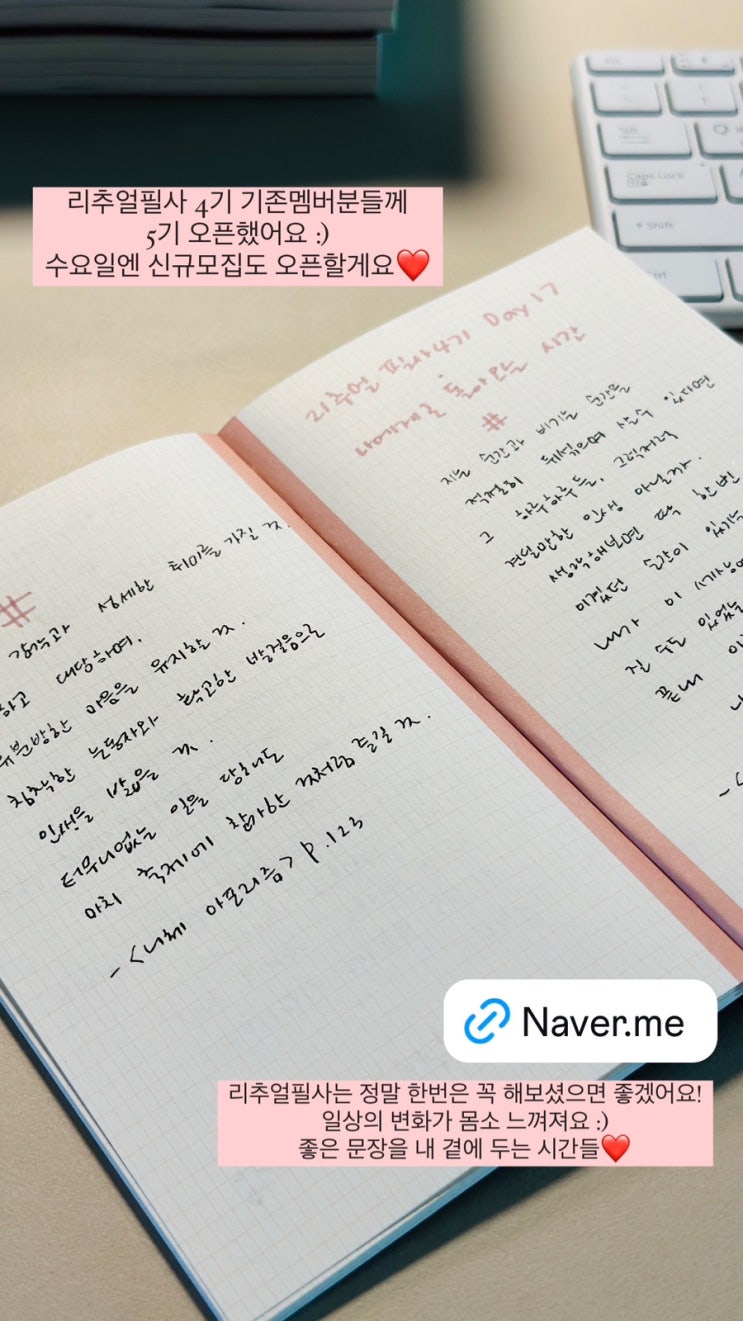 리추얼필사 4기 기존멤버분들께
5기 오픈했어요 :)
수요일엔 신규모집도 오픈할게요❤️
리추얼 필사4기 Day 17
나에게로 돌아오는 시간
#
지는 순간과 비기는 순간을
적절히 뒤섞으며 살 수 있다면
그 하루하루들, 그럭저럭
견딜만한 인생 아닐까.
생각해보면 딱 한번
이겼던 순간이 있기
내가 이 세상에
질 수도 있었
끝내 이
#
감각과 섬세한 취미를 가질 것.
하고 대담하며,
유분방한 마음을 유지할 것.
침착한 눈동자와 확고한 발걸음으로
인생을 밟을 것.
터무니없는 일을 당해도
마치 축제에 참가한 것처럼 즐길 것.
- <니체 아포리즘> p.123
Naver.me
리추얼필사는 정말 한번은 꼭 해보셨으면 좋겠어요!
일상의 변화가 몸소 느껴져요 :)
좋은 문장을 내 곁에 두는 시간들❤️
Caps Lock
Shift